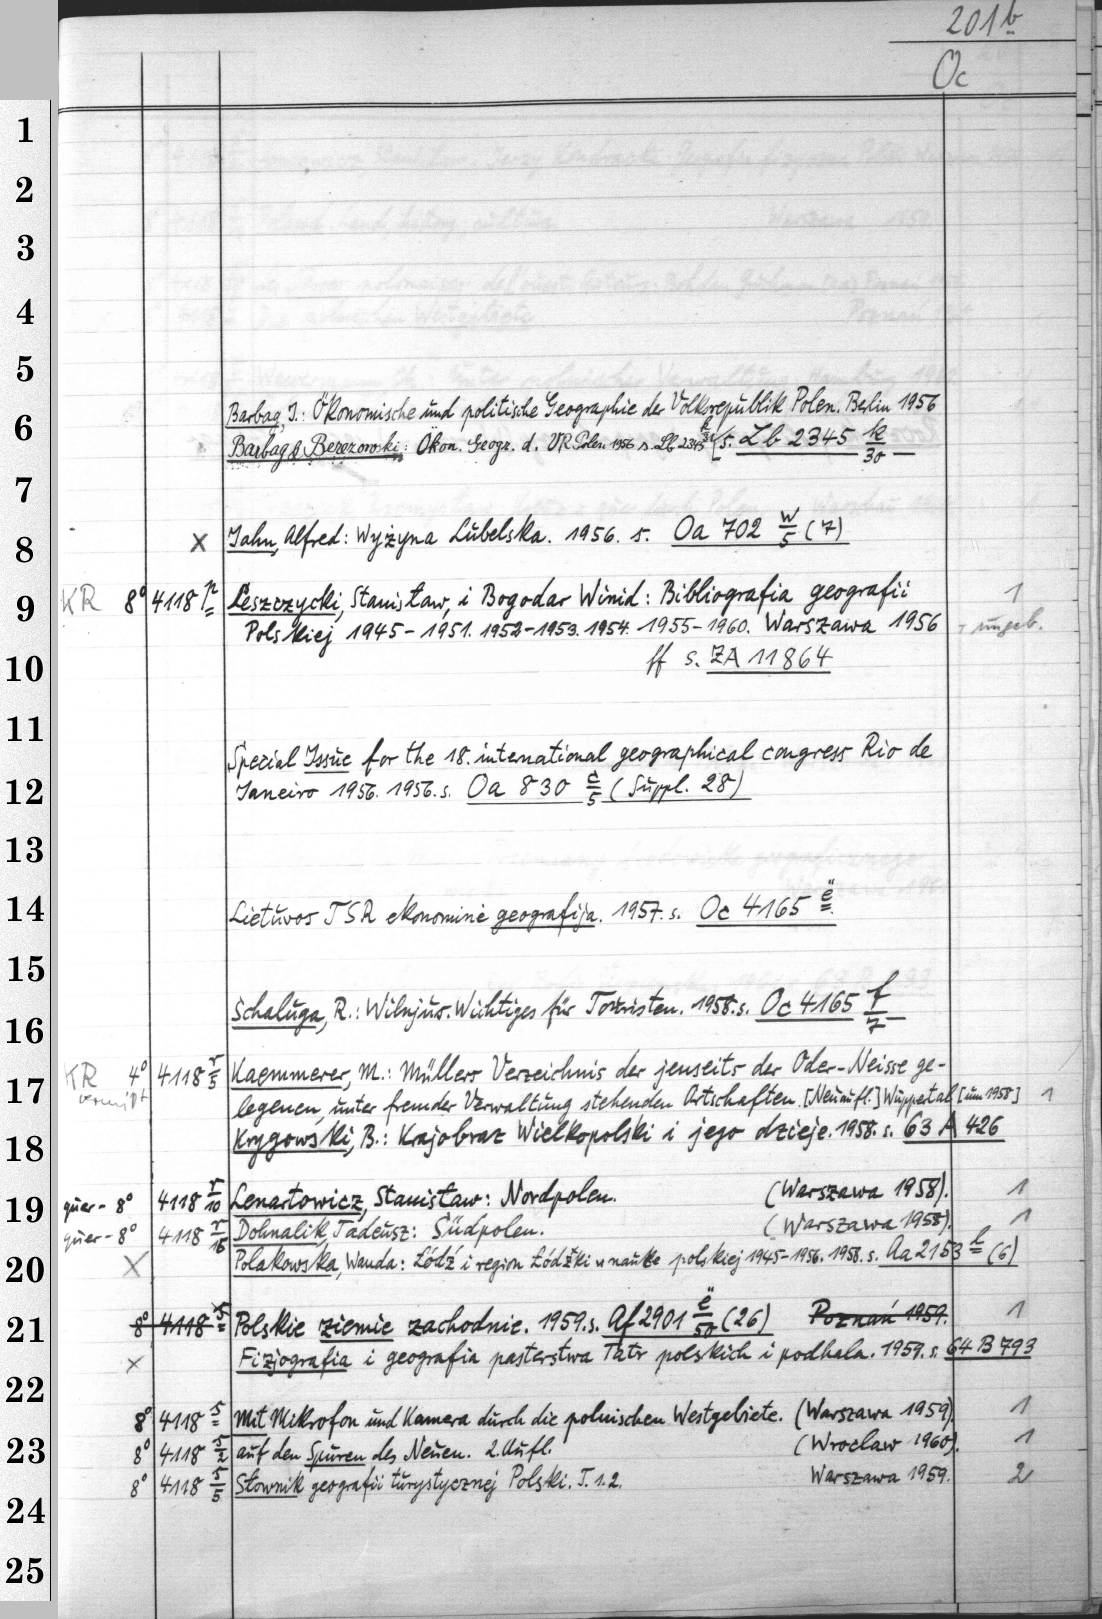 201b
Oc
1
2
3
4
5
6
7
8
9
10
11
12
13
14
15
16
17
18
19
20
21
22
23
24
25
Barbag, J.: Ökonomische und politische Geographie der Volksrepublik Polen. Berlin 1956
Barbag & Berezowski: Ökon. Geogr. d. VR Polen. 1956 s. Lb 2345 k/30 [s. Lb 2345 k/30
x Jahn, Alfred: Wyżyna Lubelska. 1956. s. Oa 702 w/5 (7)
KR 8° 4118 p Leszczycki, Stanisław, i Bogodar Winid: Bibliografia geografii 1
Polskiej 1945-1951. 1952-1953. 1954. 1955-1960. Warszawa 1956 ungeb.
ff s. ZA 11864
Special Issue for the 18. international geographical congress Rio de
Janeiro 1956. 1956. s. Oa 830 c/5 (Suppl. 28)
Lietuvos TSR ekonominė geografija. 1957. s. Oc 4165 ë
Schaluga, R.: Wilnjus. Wichtiges für Touristen. 1958. s. Oc 4165 f/7
KR 4° 4118 r/5 Kaemmerer, M.: Müllers Verzeichnis der jenseits der Oder-Neisse ge-
vermißt legenen, unter fremder Verwaltung stehenden Ortschaften. [Neuaufl.] Wuppertal [um 1958] 1
Krygowski, B.: Krajobraz Wielkopolski i jego dzieje. 1958. s. 63 A 426
quer-8° 4118 r/10 Lenartowicz, Stanisław: Nordpolen. (Warszawa 1958). 1
quer-8° 4118 r/16 Dohnalik, Tadeusz: Südpolen. (Warszawa 1958). 1
x Polakowska, Wanda: Łódź i region Łódzki w nauke polskiej 1945-1956. 1958. s. Aa 2153 l (6)
8° 4118 s Polskie ziemie zachodnie. 1959. s. Af 2901 ë/50 (26) Poznań 1959. 1
x Fizjografia i geografia pasterstwa Tatr polskich i podhala. 1959. s. 64 B 793
8° 4118 s Mit Mikrofon und Kamera durch die polnischen Westgebiete. (Warszawa 1959). 1
8° 4118 s/2 auf den Spuren des Neuen. 2. Aufl. (Wrocław 1960). 1
8° 4118 s/5 Słownik geografii turystycznej Polski. T. 1.2. Warszawa 1959. 2